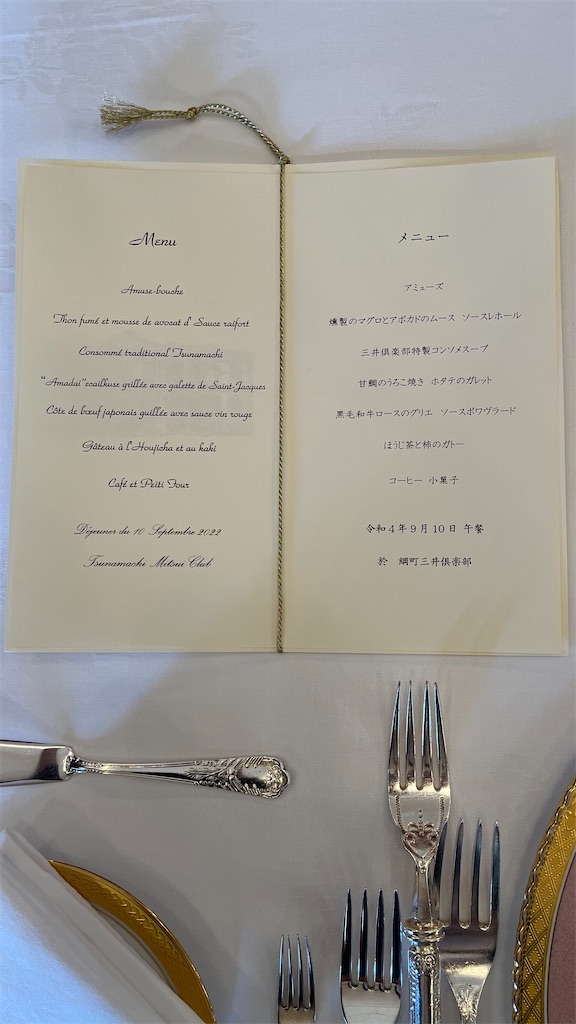 Menu
Amuse-bouche
Thon fumé et mousse de avocat d' Sauce raifort
Consommé traditional Tsunamachi
"Amadai"ecailkuse grillée avec galette de Saint-Jacques
Côte de bœuf japonais guillée avec sauce vin rouge
Gâteau à l'Houjicha et au kaki
Café et Peiti Four
Déjeuner du 10 Septembre 2022
Tsunamachi Mitsui Club
メニュー
アミューズ
燻製のマグロとアボカドのムース ソースレホール
三井倶楽部特製コンソメスープ
甘鯛のうろこ焼き ホタテのガレット
黒毛和牛ロースのグリエ ソースポワヴラード
ほうじ茶と柿のガトー
コーヒー 小菓子
令和4年9月10日 午餐
於 綱町三井倶楽部